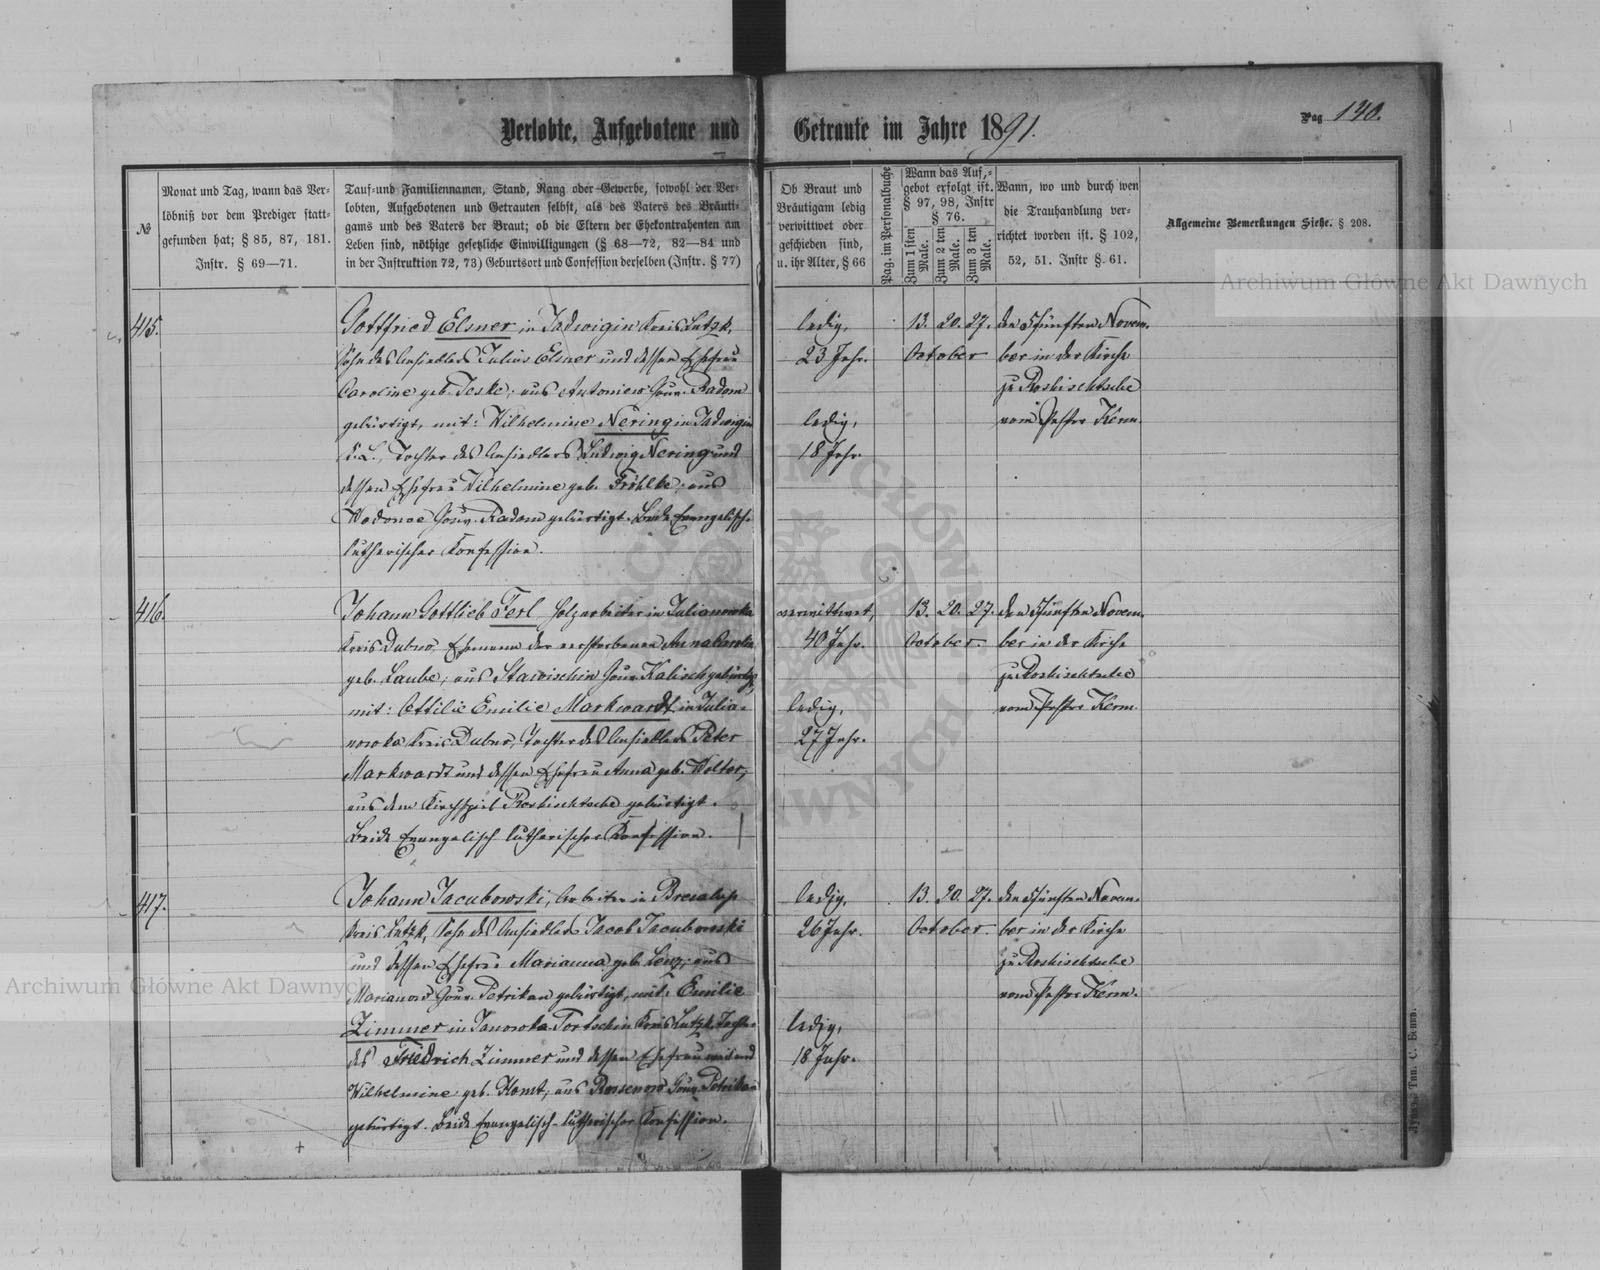 Verlobte, Aufgebotene und Getraute im Jahre 1891.
Pag 140.
№
Monat und Tag, wann das Ver-
löbniß vor dem Prediger statt-
gefunden hat; § 85, 87, 181.
Instr. § 69—71.
Tauf-und Familiennamen, Stand, Rang oder Gewerbe, sowohl der Ver-
lobten, Aufgebotenen und Getrauten selbst, als des Vaters des Bräuti-
gams und des Vaters der Braut; ob die Eltern der Ehekontrahenten am
Leben sind, nöthige gesetzliche Einwilligungen (§ 68—72, 82—84 und
in der Instruktion 72, 73) Geburtsort und Confession derselben (Instr. § 77)
Ob Braut und
Bräutigam ledig
verwittwet oder
geschieden sind,
u. ihr Alter, § 66
Pag. im Personalbuche
Wann das Auf-
gebot erfolgt ist.
§ 97, 98, Instr
§ 76.
Zum 1 sten Male.
Zum 2 ten Male.
Zum 3 ten Male.
Wann, wo und durch wen
die Trauhandlung ver-
richtet worden ist. § 102,
52, 51. Instr § 61.
Allgemeine Bemerkungen Siehe. § 208.
Archiwum Główne Akt Dawnych
415.
Gottfried Elsner in Jadwigin Kreis Lutzk,
Sohn des Ansiedlers Julius Elsner und dessen Ehefrau
Caroline geb. Teske, aus Antoniew Gouv. Radom
gebürtigt, mit: Wilhelmine Nering in Jadwigin
K. L., Tochter des Ansiedlers Ludwig Nering und
dessen Ehefrau Wilhelmine geb. Fröhlke, aus
Gouv. Radom gebürtigt. Beide Evangelisch-
lutherischer Konfession.
ledig,
23 Jahr.
ledig,
18 Jahr.
13. 20. 27.
October
den Fünften Novem-
ber in der Kirche
zu Roshischtsche
vom Pastor Kerm.
416.
Johann Gottlieb Ferl Holzarbeiter in Julianowka
Kreis Dubno, Ehemann der verstorbenen Anna
geb. Laube, aus Stawischin Gouv. Kalisch gebürtigt,
mit: Ottilie Emilie Markwardt, in Julia-
nowka Kreis Dubno, Tochter des Ansiedlers Peter
Markwardt und dessen Ehefrau Anna geb. Wolter,
aus dem Kirchspiel Roshischtsche gebürtigt.
Beide Evangelisch-lutherischer Konfession.
verwittwet,
40 Jahr.
ledig,
27 Jahr.
13. 20. 27.
October.
den Fünften Novem-
ber in der Kirche
zu Roshischtsche
vom Pastor Kerm.
417.
Johann Jacubowski, Arbeiter in
Kreis Lutzk, Sohn des Ansiedlers Jacob Jacubowski
und dessen Ehefrau Marianna geb. Lenz, aus
Marianow Gouv. Petrikau gebürtigt, mit: Emilie
Zimmer in Janowka Tortschin Kreis Lutzk, Tochter
des Friedrich Zimmer und dessen Ehefrau
Wilhelmine geb. aus Gouv. Petrikau
gebürtigt. Beide Evangelisch-lutherischer Konfession.
ledig,
26 Jahr.
ledig,
18 Jahr.
13. 20. 27.
October.
den Fünften Novem-
ber in der Kirche
zu Roshischtsche
vom Pastor Kerm.
Archiwum Główne Akt Dawnych